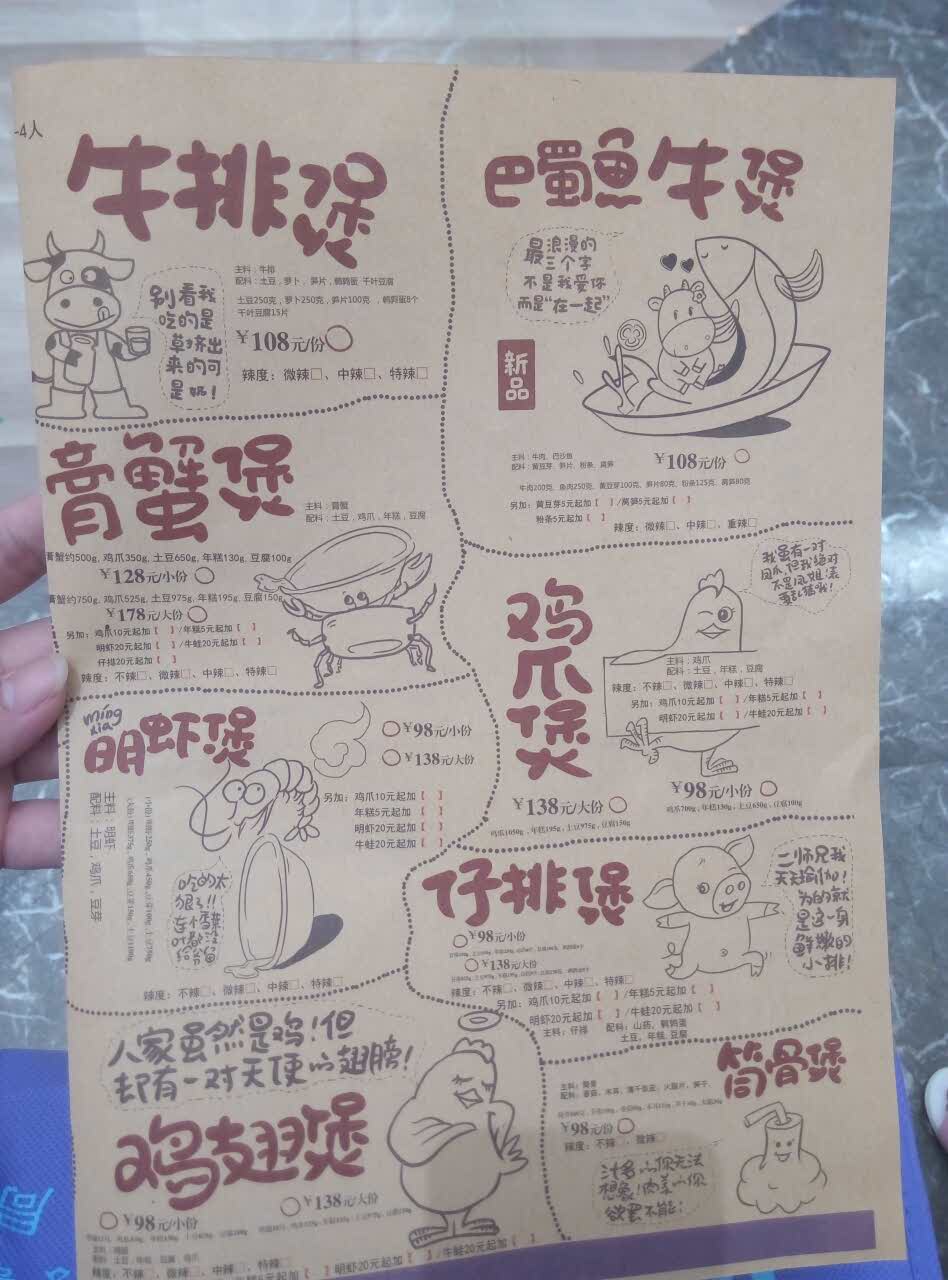 -4人
牛排煲
别看我
吃的是
草挤出
来的可
是奶!
主料:牛排
配料:土豆,萝卜,笋片,鹌鹑蛋 千叶豆腐
土豆250克,萝卜250克,笋片100克,鹌鹑蛋8个
千叶豆腐15片
¥108元/份
辣度:微辣□、中辣□、特辣□
巴蜀鱼牛煲
最浪漫的
三个字
不是我爱你
而是“在一起”
新品
主料:牛肉、巴沙鱼
配料:黄豆芽、笋片、粉条、莴笋
¥108元/份
牛肉200克、鱼肉250克、黄豆芽100克、笋片80克、粉条125克、莴笋80克
另加:黄豆芽5元起加【 】/莴笋5元起加【 】
粉条5元起加【 】
辣度:微辣□、中辣□、重辣□
膏蟹煲
主料:膏蟹
配料:土豆,鸡爪,年糕,豆腐
膏蟹约500g, 鸡爪350g, 土豆650g, 年糕130g, 豆腐100g
¥128元/小份
膏蟹约750g, 鸡爪525g, 土豆975g, 年糕195g, 豆腐150g
¥178元/大份
另加:鸡爪10元起加【 】/年糕5元起加【 】
明虾20元起加【 】/牛蛙20元起加【 】
仔排20元起加【 】
辣度:不辣□、微辣□、中辣□、特辣□
鸡爪煲
我虽有一对
凤爪,但我绝对
不是凤姐,表
要乱猜哦!
主料:鸡爪
配料:土豆,年糕,豆腐
辣度:不辣□、微辣□、中辣□、特辣□
另加:鸡爪10元起加【 】/年糕5元起加【 】
明虾20元起加【 】/牛蛙20元起加【 】
¥138元/大份
鸡爪1050g,年糕195g,土豆975g,豆腐150g
¥98元/小份
鸡爪700g,年糕130g,土豆650g,豆腐100g
míng xia
明虾煲
¥98元/小份
¥138元/大份
另加:鸡爪10元起加【 】
年糕5元起加【 】
明虾20元起加【 】
牛蛙20元起加【 】
主料:明虾
配料:土豆,鸡爪,豆芽
吃的太
狠了!!
连个香菜
叶都没
给分留
辣度:不辣□、微辣□、中辣□、特辣□
仔排煲
¥98元/小份
¥138元/大份
辣度:不辣□、微辣□、中辣□、特辣□
另加:鸡爪10元起加【 】/年糕5元起加【 】
明虾20元起加【 】/牛蛙20元起加【 】
主料:仔排 配料:山药,鹌鹑蛋
土豆,年糕,豆腐
二师兄我
天天瑜伽!
为的就
是这一身
鲜嫩的
小排!
人家虽然是鸡!但
却有一对天使的翅膀!
鸡翅煲
¥98元/小份
¥138元/大份
辣度:不辣□、微辣□、中辣□、特辣□
年糕5元起加【 】 明虾20元起加【 】/牛蛙20元起加【 】
筒骨煲
¥98元/份
辣度:不辣□、微辣□
汁多的你无法
想象!肉菜的你
欲罢不能!